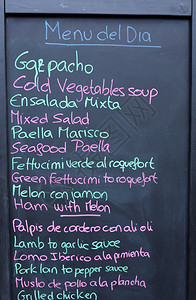 Menu del Dia
Gazpacho
Cold Vegetables soup
Ensalada Mixta
Mixed Salad
Paella Marisco
Seafood Paella
Fettucimi verde al roquefort
Green Fettucimi to roquefort
Melon con jamon
Ham with Melon
Palpis de cordero con ali oli
Lamb to garlic sauce
Lomo Iberico a la pimienta
Pork loin to pepper sauce
Muslo de pollo a la plancha
Grilled chicken